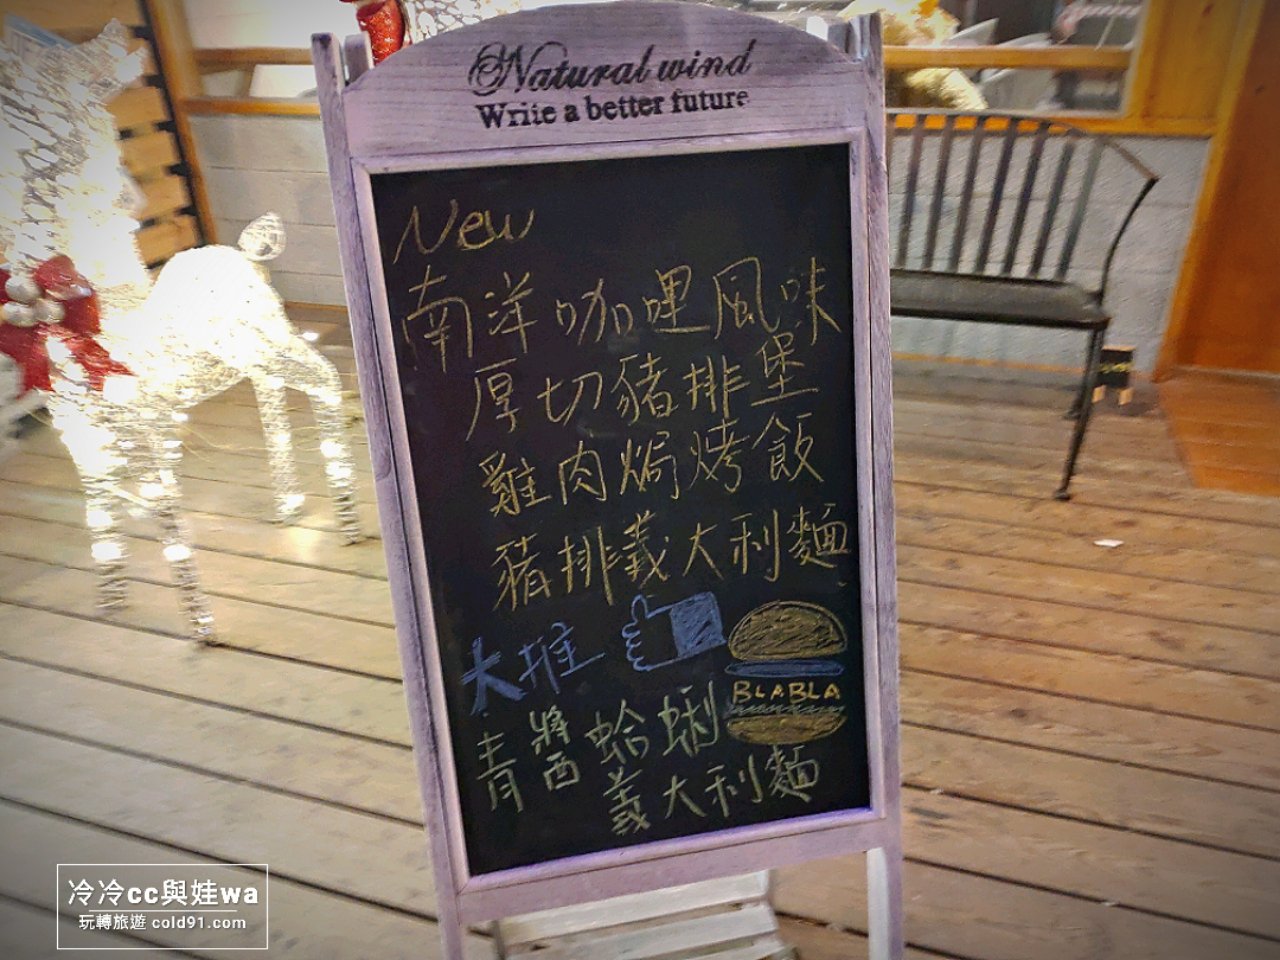 Natural wind
Write a better future
New
南洋咖哩風味
厚切豬排堡
雞肉焗烤飯
豬排義大利麵
大推
BLABLA
青醬蛤蜊
義大利麵
冷冷cc與娃wa
玩轉旅遊 cold91.com